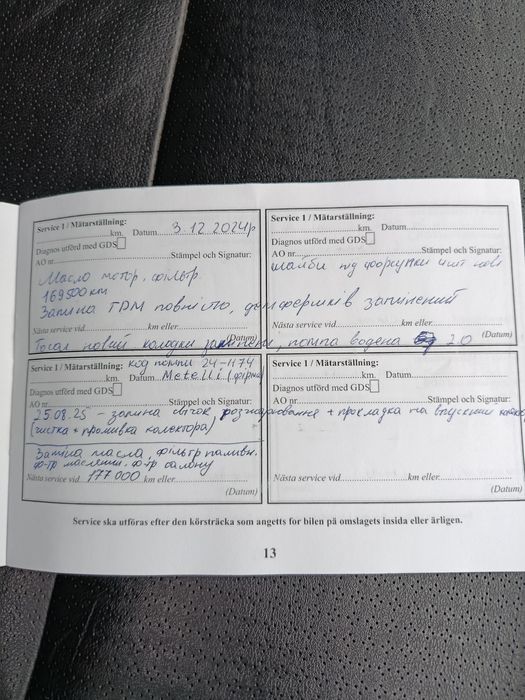 Service 1 / Mätarställning:
km. Datum 3.12.2024р
Diagnos utförd med GDS
Stämpel och Signatur:
AO nr
Масло мотор. фільтр
169500 km
Заміна ГРМ повністю, демферний шків замінений
Nästa service vid km eller
(Datum)
Тосол новий колодки замінені, помпа водена 2.0
Service 1 / Mätarställning:
km. Datum
Diagnos utförd med GDS
Stämpel och Signatur:
AO nr
шайби під форсунки
Nästa service vid km eller
(Datum)
Service 1 / Mätarställning: код помпи 24-1174
km. Datum Metelli (фірма
Diagnos utförd med GDS
Stämpel och Signatur:
AO nr
25.08.25 - заміна свічок розжарювання + прокладка на впускний
(чистка + промивка колектора)
Заміна масла, фільтр паливн.
ф-тр масляний. ф-тр салону
Nästa service vid 177 000 km eller
(Datum)
Service 1 / Mätarställning:
km. Datum
Diagnos utförd med GDS
Stämpel och Signatur:
AO nr
Nästa service vid km eller
(Datum)
Service ska utföras efter den körsträcka som angetts for bilen på omslagets insida eller årligen.
13